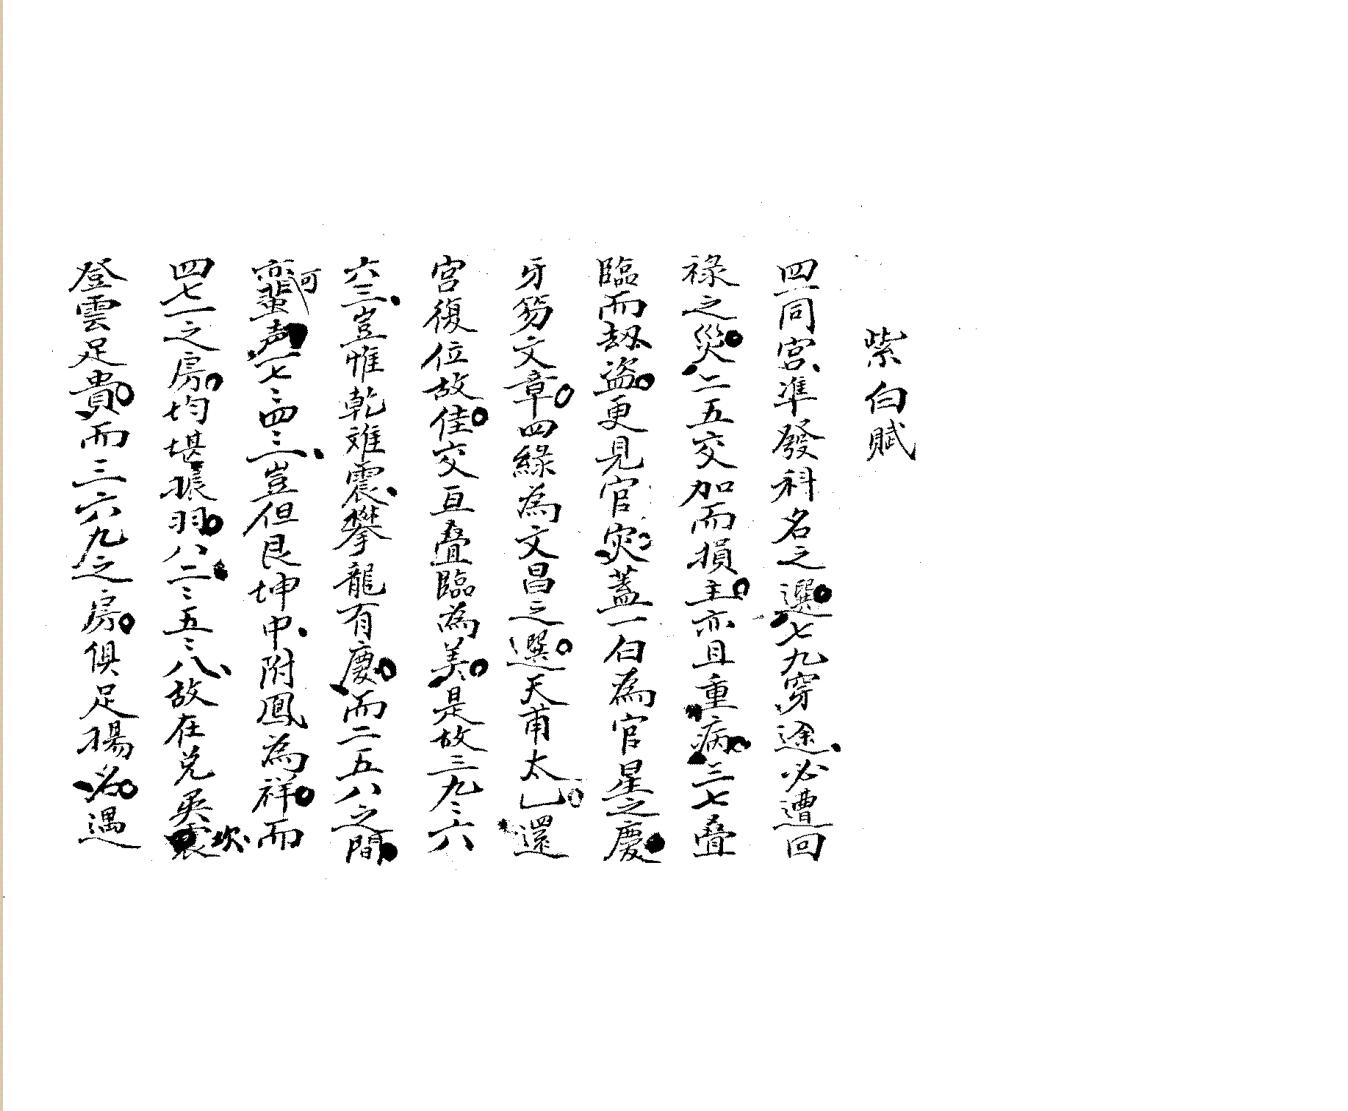 紫白賦
四一同宮、準發科名之選。七九穿途、必遭回
祿之災。二五交加而損主。亦且重病。三七叠
臨而劫盜。更見官灾。蓋一白為官星之慶。
牙笏文章。四綠為文昌之選。天甫太乙。還
宮復位故佳。交亙叠臨為美。是故三九、九六、
六三、豈惟乾难震、攀龍有慶。而二五八之間。
亦可蜚声。一七、七四、四一、豈但艮坤中、附鳳為祥。而
四七一之房。均堪振羽。八二、二五、五八、故在兑巽震坎
登雲足貴。而三六九之房。俱足揚名。遇